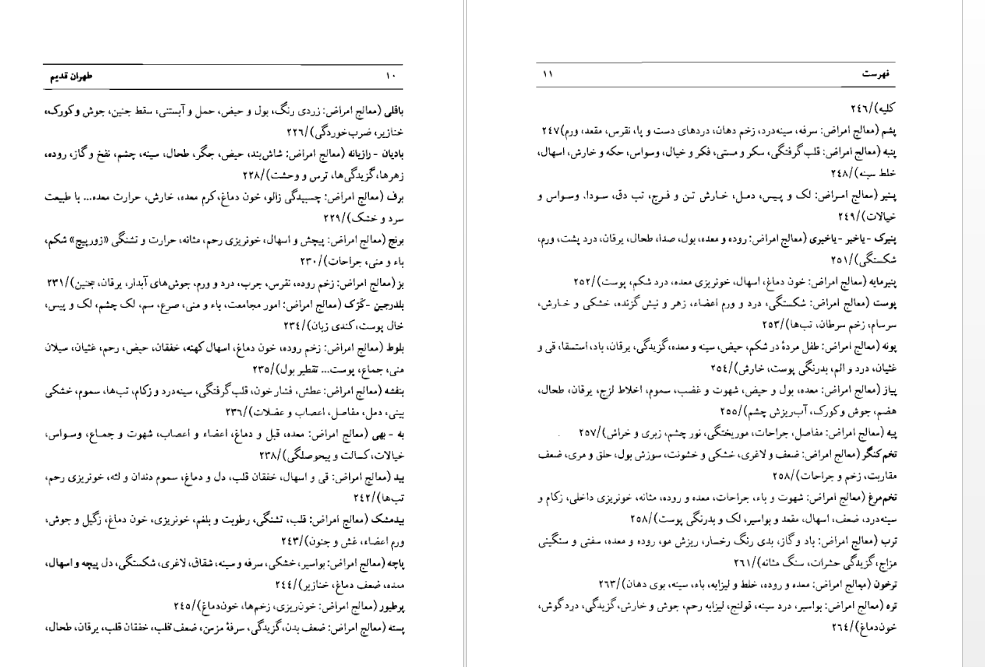 طهران قدیم ۱۰
باقلی (معالج امراض: زردی رنگ، بول و حیض، حمل و آبستنی، سقط جنین، جوش و کورک،
خنازیر، ضرب‌خوردگی)/۲۲۶
بادیان - رازیانه (معالج امراض: شاش‌بند، حیض، جگر، طحال، سینه، چشم، نفخ و گاز، روده،
زهرها، گزیدگی‌ها، ترس و وحشت)/۲۲۸
برف (معالج امراض: چسبیدگی زالو، خون دماغ، کرم معده، خارش، حرارت معده... با طبیعت
سرد و خشک)/۲۲۹
برنج (معالج امراض: پیچش و اسهال، خونریزی رحم، مثانه، حرارت و تشنگی «زورپیچ» شکم،
باء و منی، جراحات)/۲۳۰
بز (معالج امراض: زخم روده، نقرس، جرب، درد و ورم، جوش‌های آبدار، یرقان، جنین)/۲۳۱
بلدرجین - کَرَک (معالج امراض: امور مجامعت، باء و منی، صرع، سم، لک چشم، لک و پیس،
خال پوست، کندی زبان)/۲۳۴
بلوط (معالج امراض: زخم روده، خون دماغ، اسهال کهنه، خفقان، حیض، رحم، غثیان، سیلان
منی، جماع، پوست... تقطیر بول)/۲۳۵
بنفشه (معالج امراض: عطش، فشار خون، قلب‌گرفتگی، سینه‌درد و زکام، تب‌ها، سموم، خشکی
بینی، دمل، مفاصل، اعصاب و عضلات)/۲۳۶
به - بهی (معالج امراض: معده، قبل و دماغ، اعضاء و اعصاب، شهوت و جماع، وسواس،
خیالات، کسالت و بیحوصلگی)/۲۳۸
بید (معالج امراض: قی و اسهال، خفقان قلب، دل و دماغ، سموم دندان و لثه، خونریزی رحم،
تب‌ها)/۲۴۲
بیدمشک (معالج امراض: قلب، تشنگی، رطوبت و بلغم، خونریزی، خون دماغ، زگیل و جوش،
ورم اعضاء، غش و جنون)/۲۴۳
پاچه (معالج امراض: بواسیر، خشکی، سرفه و سینه، شقاق، لاغری، شکستگی، دل پیچه و اسهال،
معده، ضعف دماغ، خنازیر)/۲۴۴
پرطیور (معالج امراض: خون‌ریزی، زخم‌ها، خون‌دماغ)/۲۴۵
پسته (معالج امراض: ضعف بدن، گزیدگی، سرفهٔ مزمن، ضعف قلب، خفقان قلب، یرقان، طحال،
فهرست ۱۱
کلیه)/۲۴۶
پشم (معالج امراض: سرفه، سینه‌درد، زخم دهان، دردهای دست و پا، نقرس، مقعد، ورم)۲۴۷
پنبه (معالج امراض: قلب‌گرفتگی، سکر و مستی، فکر و خیال، وسواس، حکه و خارش، اسهال،
خلط سینه)/۲۴۸
پنیر (معالج امراض: لک و پیس، دمل، خارش تن و فرج، تب دق، سودا. وسواس و
خیالات)/۲۴۹
پنیرک - یاخبر - یاخبری (معالج امراض: روده و معده، بول، صدا، طحال، یرقان، درد پشت، ورم،
شکستگی)/۲۵۱
پنیرمایه (معالج امراض: خون دماغ، اسهال، خونریزی معده، درد شکم، پوست)/۲۵۲
پوست (معالج امراض: شکستگی، درد و ورم اعضاء، زهر و نیش گزنده، خشکی و خارش،
سرسام، زخم سرطان، تب‌ها)/۲۵۳
پونه (معالج امراض: طفل مردهٔ در شکم، حیض، سینه و معده، گزیدگی، یرقان، باد، استسقا، قی و
غثیان، درد و الم، بدرنگی پوست، خارش)/۲۵۴
پیاز (معالج امراض: معده، بول و حیض، شهوت و غضب، سموم، اخلاط لزج، یرقان، طحال،
هضم، جوش و کورک، آب‌ریزش چشم)/۲۵۵
پیه (معالج امراض: مفاصل، جراحات، موریختگی، نور چشم، زبری و خراش)/۲۵۷
تخم‌کنگر (معالج امراض: ضعف و لاغری، خشکی و خشونت، سوزش بول، حلق و مری، ضعف
مقاربت، زخم و جراحات)/۲۵۸
تخم‌مرغ (معالج امراض: شهوت و باء، جراحات، معده و روده، مثانه، خونریزی داخلی، زکام و
سینه‌درد، ضعف، اسهال، مقعد و بواسیر، لک و بدرنگی پوست)/۲۵۸
ترب (معالج امراض: باد و گاز، بدی رنگ رخسار، ریزش مو، روده و معده، سفتی و سنگینی
مزاج، گزیدگی حشرات، سنگ مثانه)/۲۶۱
ترخون (معالج امراض: معده و روده، خلط و لیزابه، باء، سینه، بوی دهان)/۲۶۳
تره (معالج امراض: بواسیر، درد سینه، قولنج، لیزابه رحم، جوش و خارش، گزیدگی، درد گوش،
خون‌دماغ)/۲۶۴